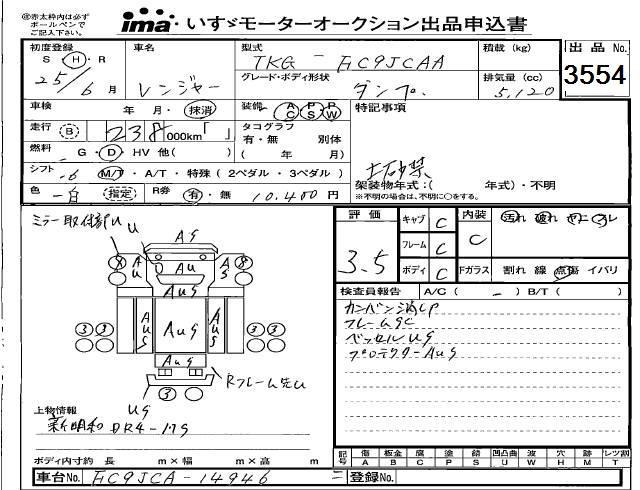 ㊟赤太枠内は必ず
ボールペンで
ご記入下さい。
ima いすゞモーターオークション出品申込書
初度登録 S・H・R
25/6月
車名
レンジャー
型式
TKG - FC9JCAA
グレード・ボディ形状
ダンプ
積載 (kg)
排気量 (cc)
5,120
出品 No.
3554
車検 年 月・抹消
装備 AC PS PW
特記事項
走行 B 238,000km
タコグラフ
有・無 別体
( 年 月)
燃料 G・D・HV 他( )
土砂禁
シフト -6 M/T・A/T・特殊 (2ペダル・3ペダル)
架装物年式:( 年式)・不明
※不明の場合は、不明に○をする。
色 白 指定 R券 有・無 10,400円
ミラー取付部U U
AS
A U
A S
AuS
AuS
AuS
AuS
AuS
3 3
3 3
3
Rフレーム先U
US
上物情報
新明和 DR4-17S
ボディ内寸約 長 m×幅 m×高 m
車台No. FC9JCA-14946
登録No.
評価
3.5
キャブ C
フレーム C
ボディ C
内装
C
汚れ 破れ ヤニ コゲ
Fガラス 割れ 線 点傷 イバリ
検査員報告 A/C ( - ) B/T ( )
カンバン消しP
フレームSC
ベッセルUS
プロテクターAuS
記号 傷 A 板金 B 腐 C 塗 P 錆 S 凹凸曲 U 波 W 穴 H 跡 M トレッド T